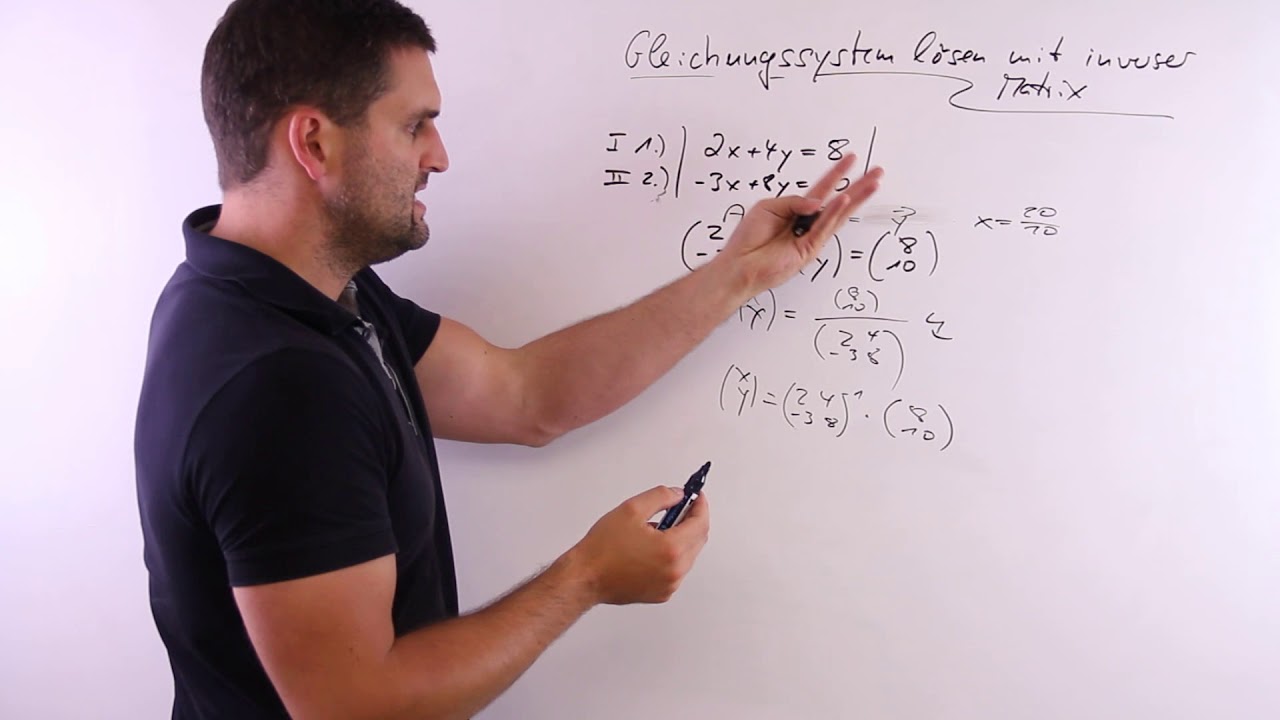 Gleichungssystem lösen mit inverser
Matrix
I 1.) | 2x+4y = 8 |
II 2.) | -3x+8y = 0 |
A = y x = 20/10
(2 - y) = (8 10)
x) = (8 10) / (2 4 -3 8) ↯
(x y) = (2 4 -3 8)^-1 · (8 10)